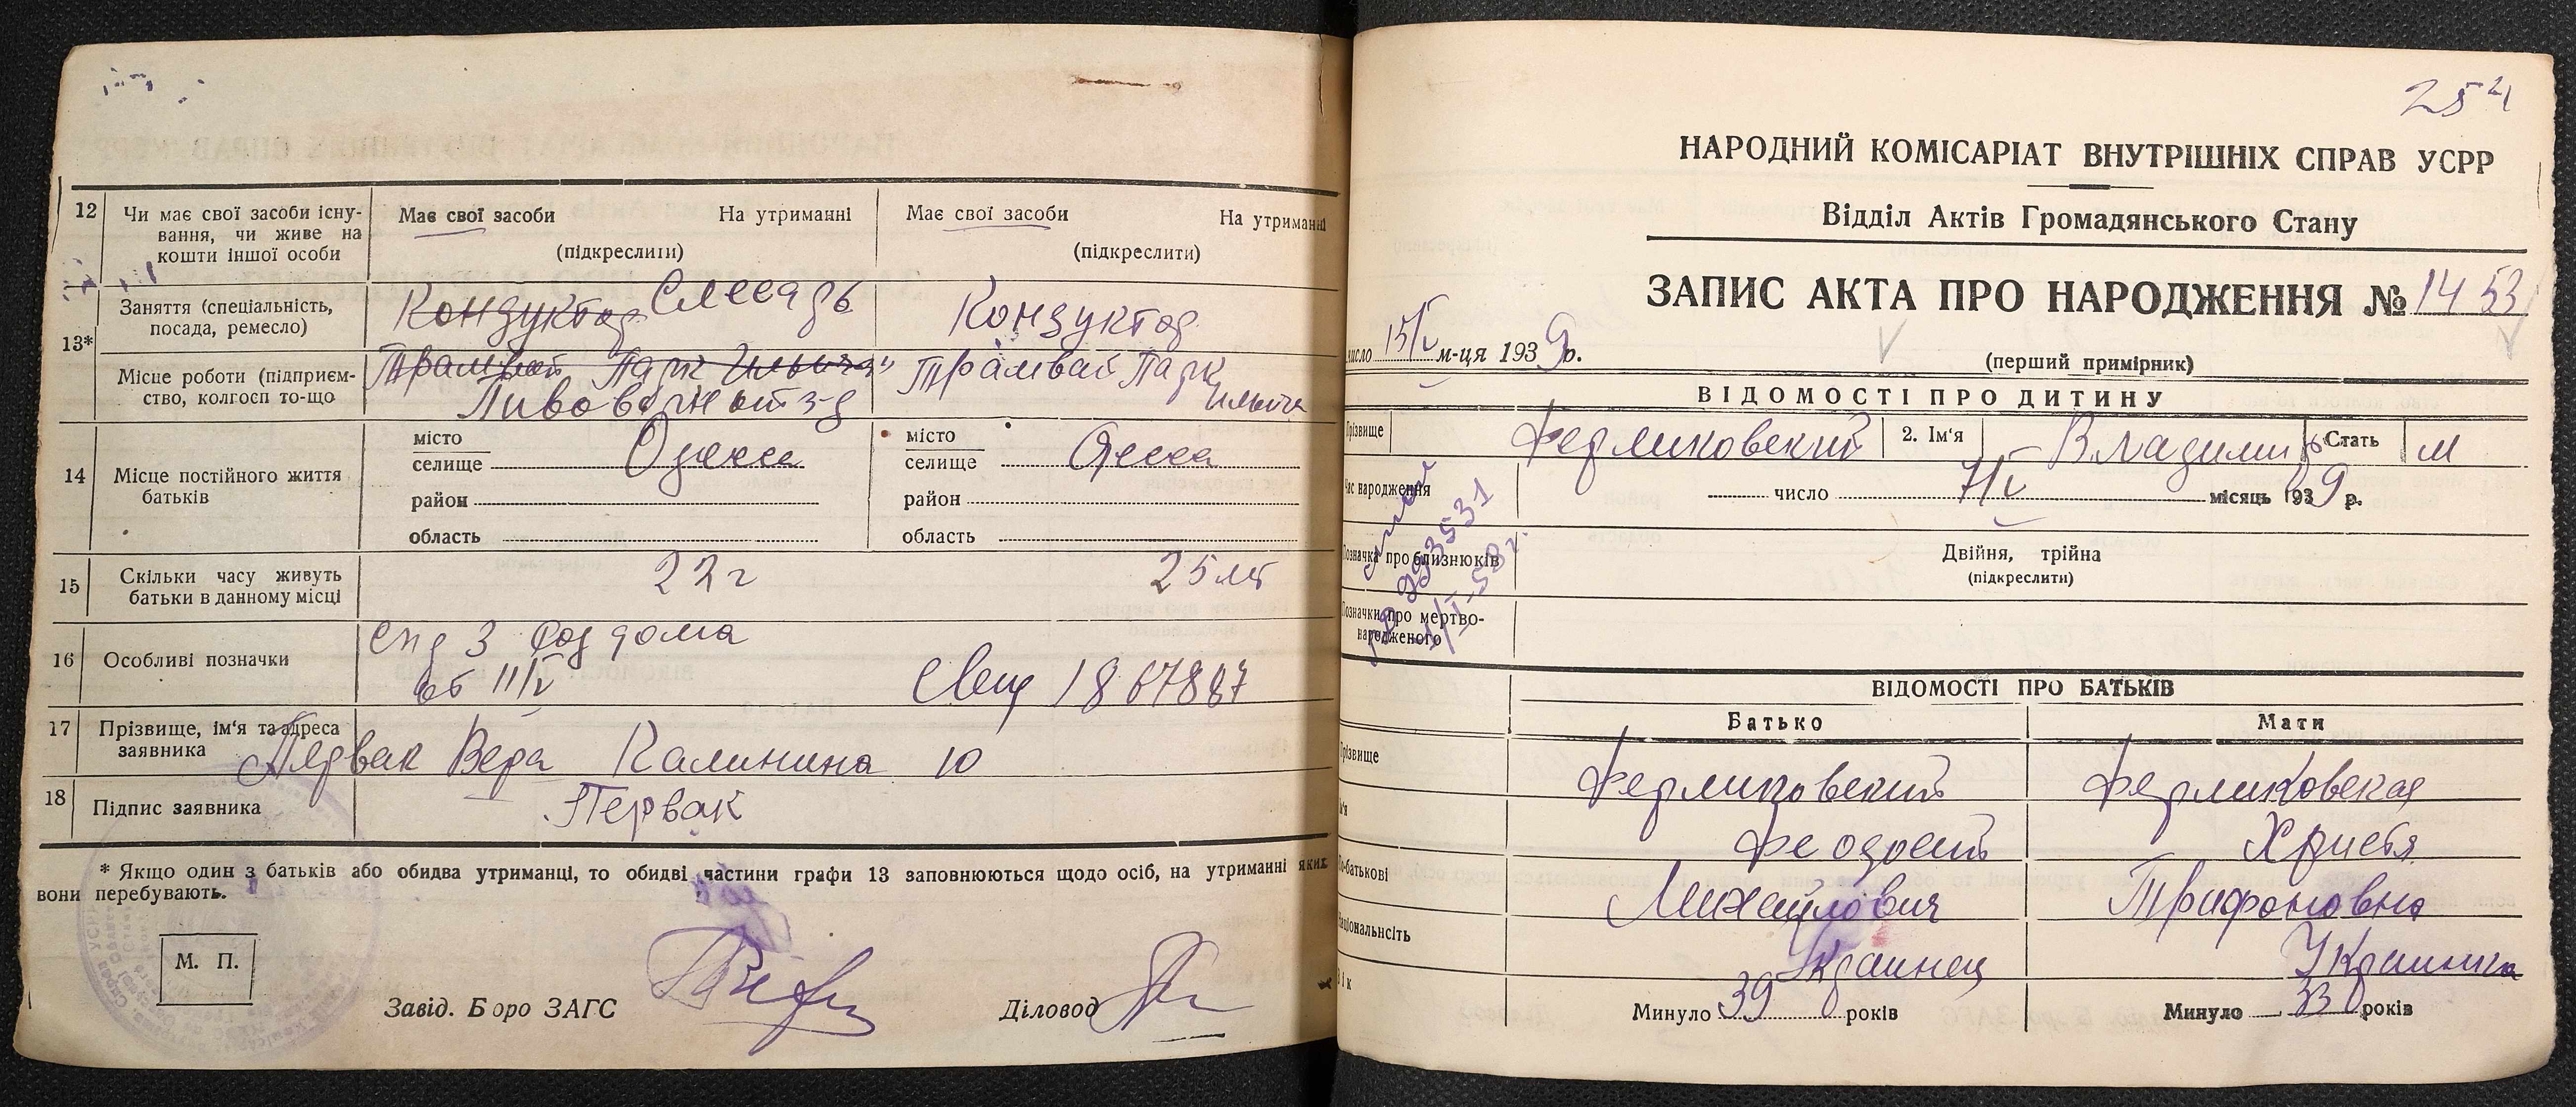 12
Чи має свої засоби існу-
вання, чи живе на
кошти іншої особи
Має свої засоби На утриманні
(підкреслити)
Має свої засоби На утриманні
(підкреслити)
13*
Заняття (спеціальність,
посада, ремесло)
Кондуктор Слесарь
Кондуктор
Місце роботи (підприєм-
ство, колгосп то-що
Трамвай Парк Ильича
Пивоварн от з-д
Трамвай Парк
Ильича
14
Місце постійного життя
батьків
місто
селище Одесса
район
область
місто
селище Одесса
район
область
15
Скільки часу живуть
батьки в данному місці
22 г
25 лет
16
Особливі позначки
спр 3 род дома
от 11/V
Свид 1867887
17
Прізвище, ім'я та адреса
заявника
Первак Вера Калинина 10
18
Підпис заявника
Первак
* Якщо один з батьків або обидва утриманці, то обидві частини графи 13 заповнюються щодо осіб, на утриманні яких
вони перебувають.
М. П.
Завід. Бюро ЗАГС
Діловод
254
НАРОДНИЙ КОМІСАРІАТ ВНУТРІШНІХ СПРАВ УСРР
Відділ Актів Громадянського Стану
ЗАПИС АКТА ПРО НАРОДЖЕННЯ № 1453
число 15/V м-ця 1939 р.
(перший примірник)
ВІДОМОСТІ ПРО ДИТИНУ
Прізвище Фермиковский 2. Ім'я Владимир Стать м
Час народження
число 7/V місяць 1939 р.
Позначка про близнюків
Двійня, трійна
(підкреслити)
Позначки про мертво-
народженого
ВІДОМОСТІ ПРО БАТЬКІВ
Батько Мати
Прізвище Фермиковский Фермиковская
Ім'я Феодосий Христя
По-батькові Михайлович Трифоновна
Національність Украинец Украинка
Вік Минуло 39 років Минуло 33 років